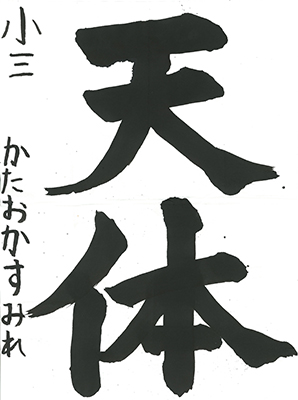 天体
小三
かたおかすみれ